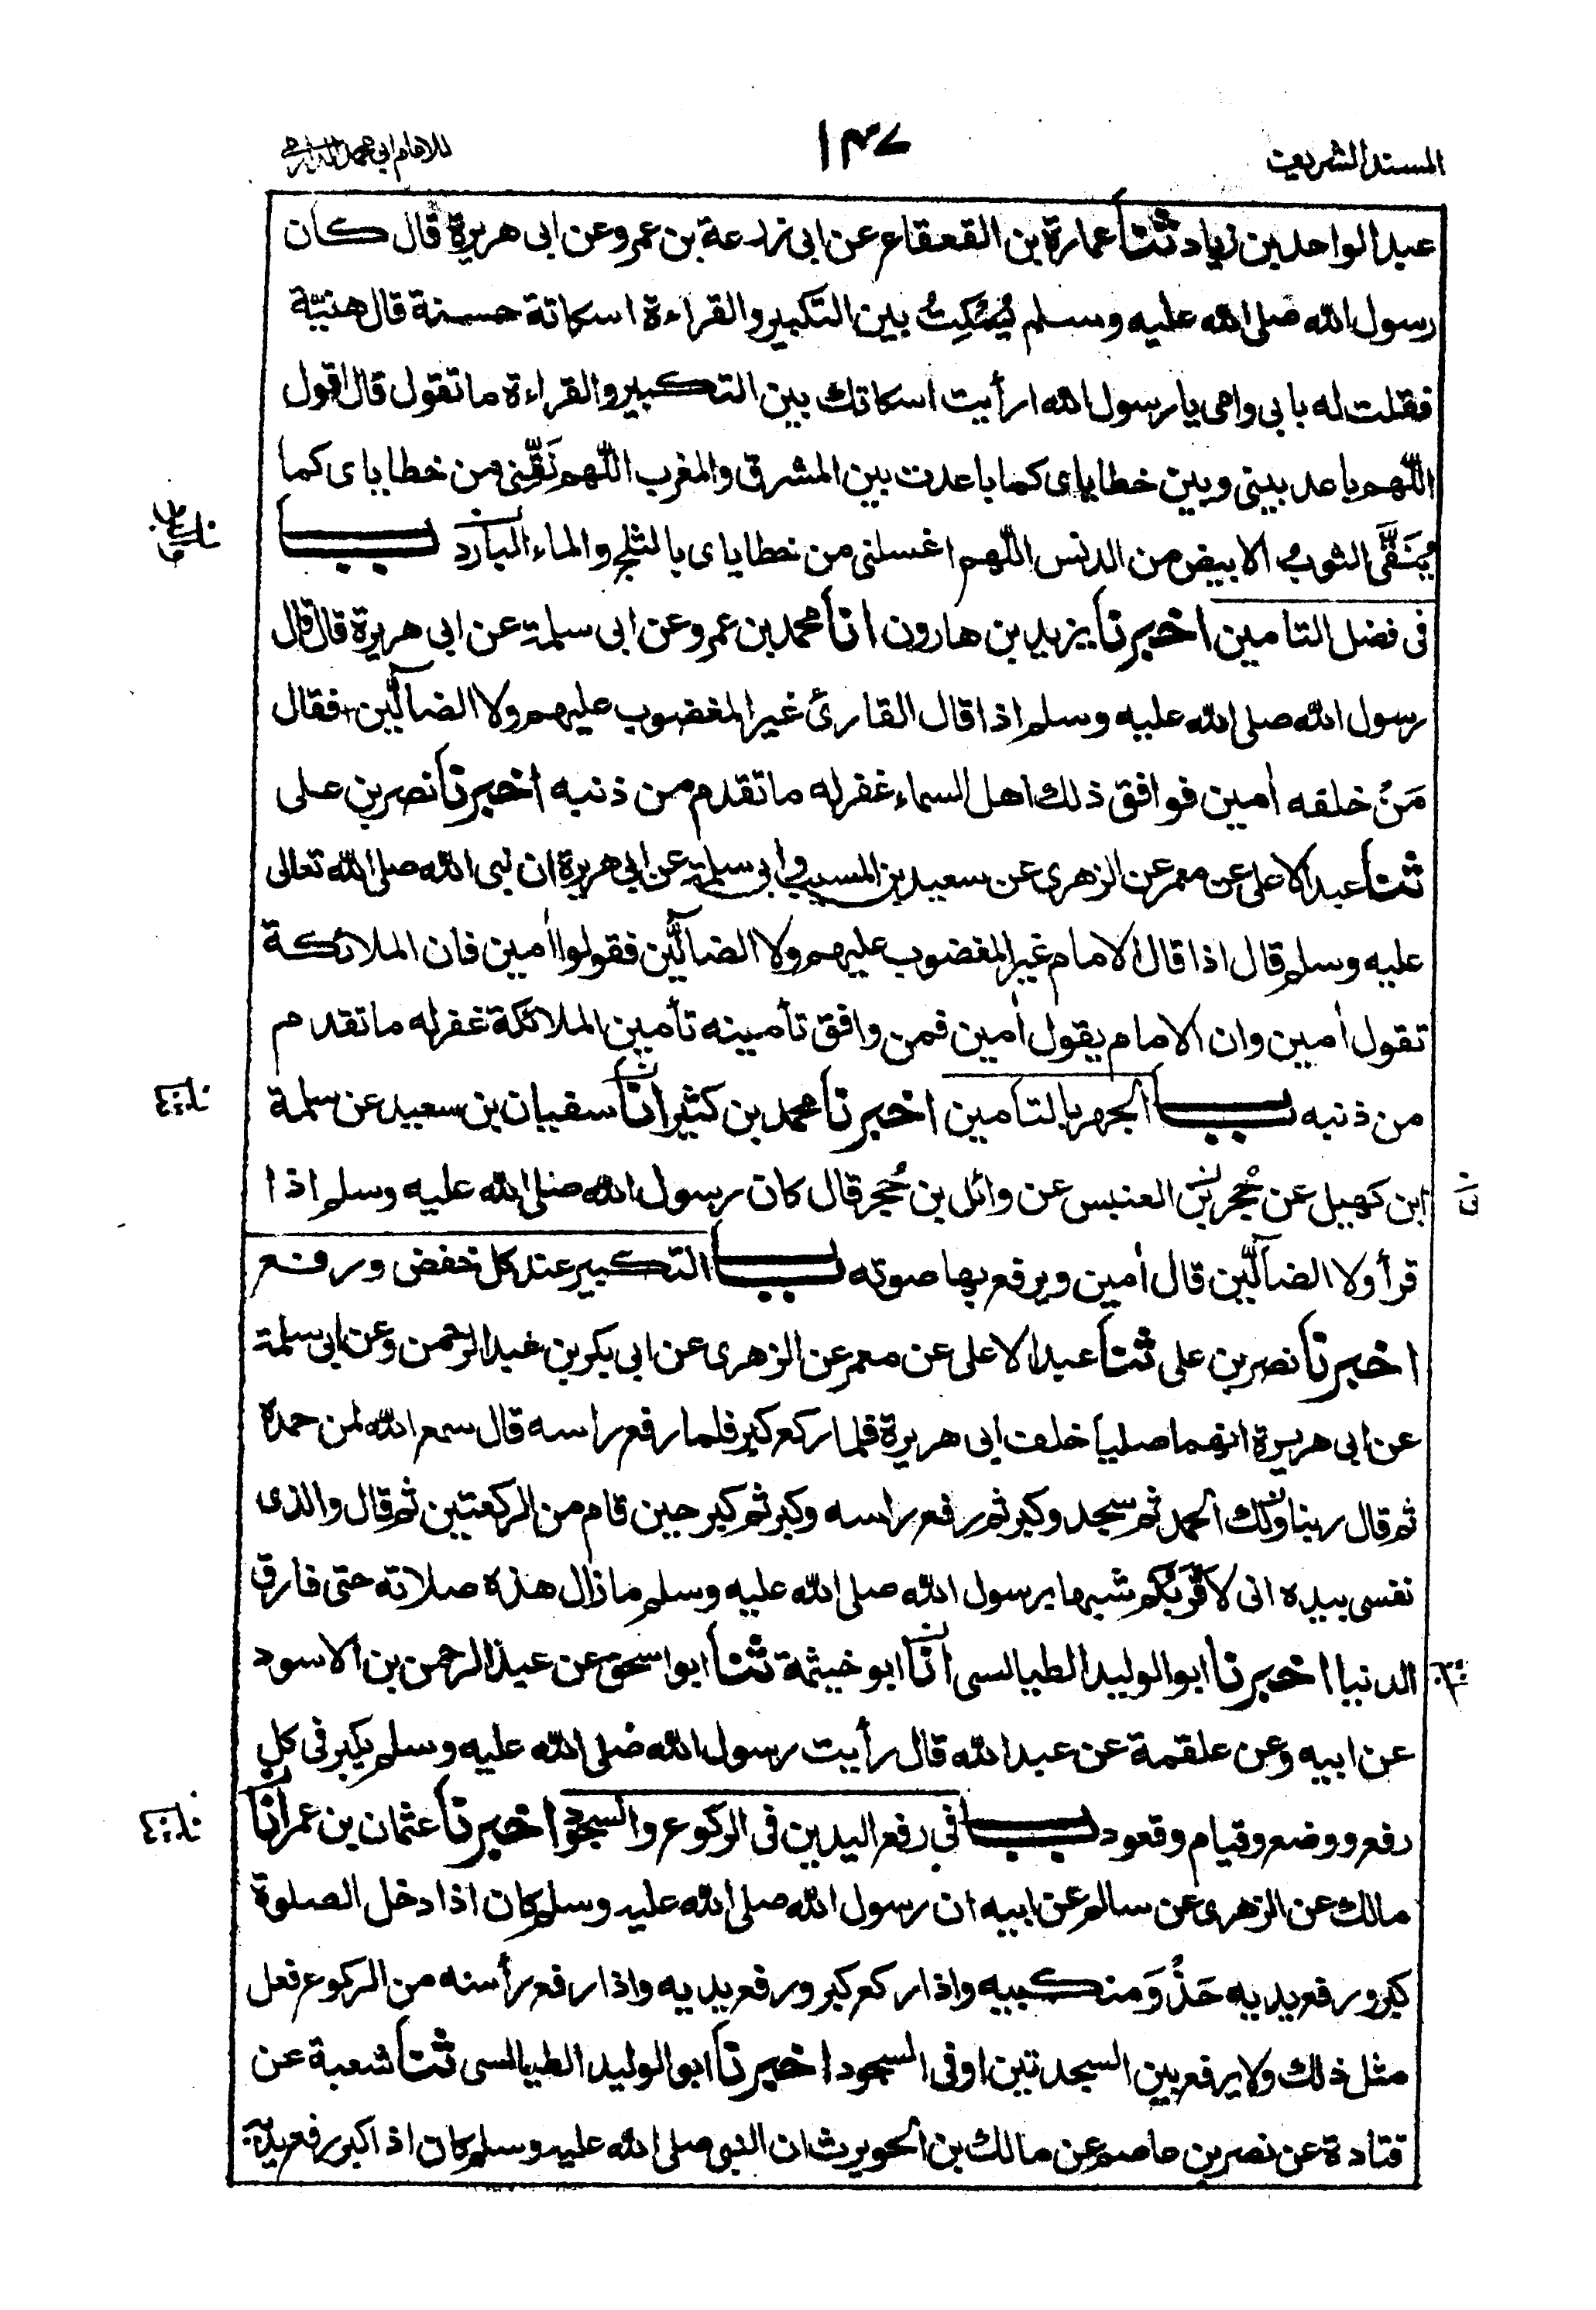 المسند الشريف
١٤٧
للامام ابي محمد الدارمي
عبد الواحد بن زياد ثنا عمارة بن القعقاع عن ابي زرعة بن عمرو عن ابي هريرة قال كان
رسول الله صلى الله عليه وسلم يُسْكِتُ بين التكبير والقراءة اسكاتة حسنة قال هنيّة
فقلت له بابي وامي يا رسول الله ارأيت اسكاتك بين التكبير والقراءة ما تقول قال اقول
اللّهم باعد بيني وبين خطاياى كما باعدت بين المشرق والمغرب اللّهم نَقِّني من خطاياى كما
يُنَقَّى الثوبُ الابيض من الدنس اللّهم اغسلني من خطاياى بالثلج والماء البارد باب
في فضل التامين اخبرنا يزيد بن هارون انا محمد بن عمرو عن ابي سلمة عن ابي هريرة قال قال
رسول الله صلى الله عليه وسلم اذا قال القارئ غير المغضوب عليهم ولا الضآلّين فقال
مَنْ خلفه اٰمين فوافق ذلك اهل السماء غفر له ما تقدم من ذنبه اخبرنا نصر بن على
ثنا عبد الاعلى عن معمر عن الزهري عن سعيد بن المسيب وابي سلمة عن ابي هريرة ان نبي الله صلى الله تعالى
عليه وسلم قال اذا قال الامام غير المغضوب عليهم ولا الضآلّين فقولوا اٰمين فان الملائكة
تقول اٰمين وان الامام يقول اٰمين فمن وافق تأمينه تأمين الملائكة غفر له ما تقدم
من ذنبه باب الجهر بالتأمين اخبرنا محمد بن كثير انا سفيان بن سعيد عن سلمة
ابن كهيل عن حُجْر بن العنبس عن وائل بن حُجر قال كان رسول الله صلى الله عليه وسلم اذا
قرأ ولا الضآلّين قال اٰمين ويرفع بها صوته باب التكبير عند كل خفض ورفع
اخبرنا نصر بن على ثنا عبد الاعلى عن معمر عن الزهرى عن ابي بكر بن عبد الرحمن وعن ابي سلمة
عن ابي هريرة انهما صليا خلف ابي هريرة فلما ركع كبر فلما رفع راسه قال سمع الله لمن حمده
ثم قال ربنا ولك الحمد ثم سجد وكبر ثم رفع راسه وكبر ثم كبر حين قام من الركعتين ثم قال والذى
نفسى بيده انى لاَقْرَبُكم شبها برسول الله صلى الله عليه وسلم ما زال هذه صلاته حتى فارق
الدنيا اخبرنا ابو الوليد الطيالسى انا ابو خيثمة ثنا ابو اسحق عن عبد الرحمن بن الاسود
عن ابيه وعن علقمة عن عبد الله قال رأيت رسول الله صلى الله عليه وسلم يكبر في كل
رفع ووضع وقيام وقعود باب في رفع اليدين في الركوع والسجود اخبرنا عثمان بن عمر انا
مالك عن الزهرى عن سالم عن ابيه ان رسول الله صلى الله عليه وسلم كان اذا دخل الصلوة
كبر ورفع يديه حَذْوَ منكبيه واذا ركع كبر ورفع يديه واذا رفع رأسه من الركوع فعل
مثل ذلك ولا يرفع بين السجدتين او في السجود اخبرنا ابو الوليد الطيالسى ثنا شعبة عن
قتادة عن نصر بن عاصم عن مالك بن الحويرث ان النبي صلى الله عليه وسلم كان اذا كبر رفع يديه